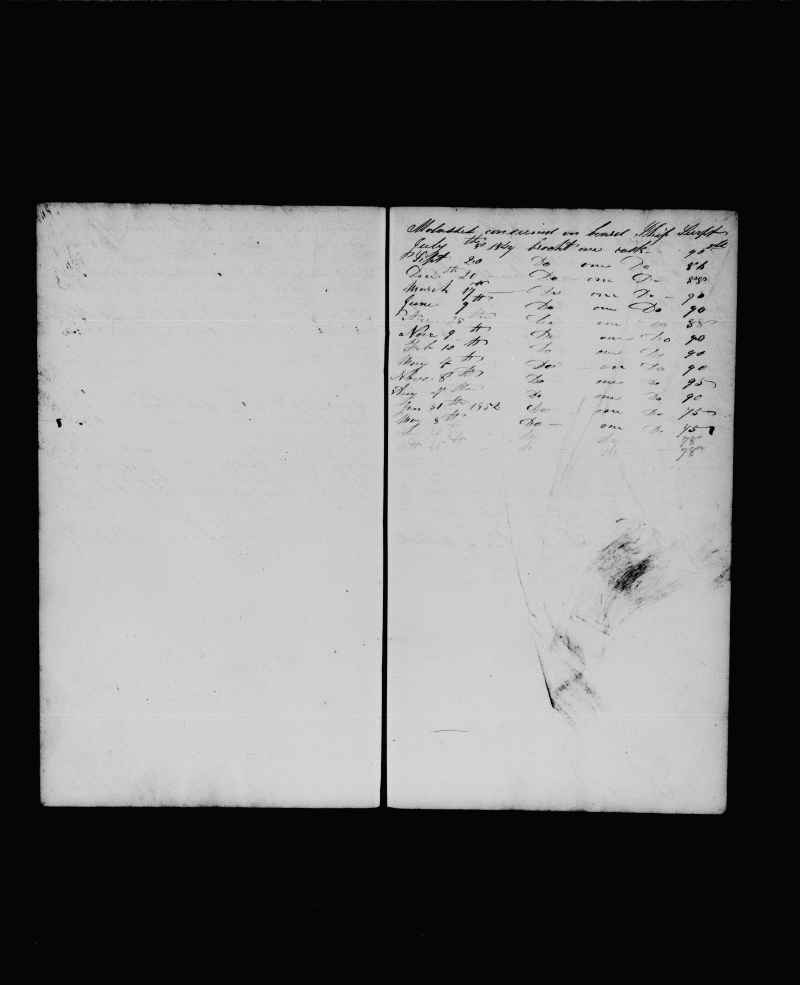 Molasses consumed on board Ship
July brocht one cask 90
Sept 20 Do one Do 86
Dec 20 Do one Do 88
March 17th Do one Do 90
June 9th Do one Do 90
th Do one Do 88
Nov 9th Do one Do 90
Feb 10th Do one Do 90
May 4th Do one Do 90
Nove 8th Do one Do 95
Aug 4th Do one Do 90
Jan 31th 1852 Do one Do 75
May 8th Do one Do 75
do do 78
Oct do do 78